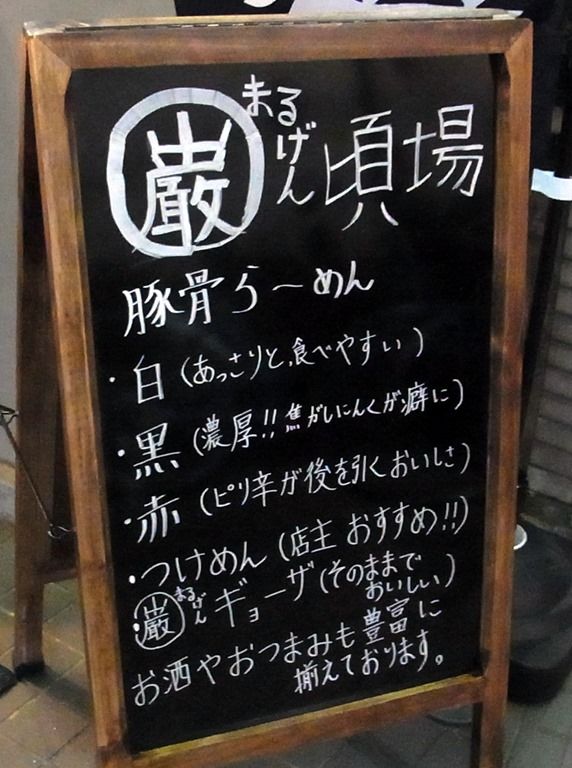 巌 まるげん 頃場
豚骨らーめん
・白(あっさりと、食べやすい)
・黒(濃厚!!焦がしにんにくが癖に)
・赤(ピリ辛が後を引くおいしさ)
・つけめん(店主おすすめ!!)
・巌 まるげん ギョーザ(そのままでおいしい)
お酒やおつまみも豊富に
揃えております。